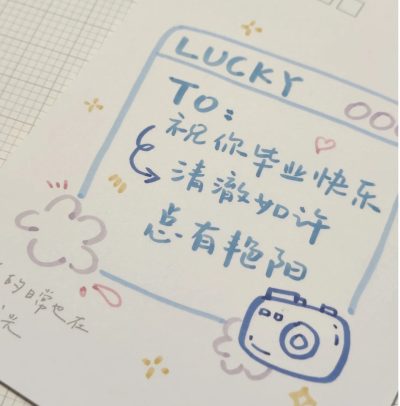 LUCKY
TO:
祝你毕业快乐
清澈如许
总有艳阳
的日常也在